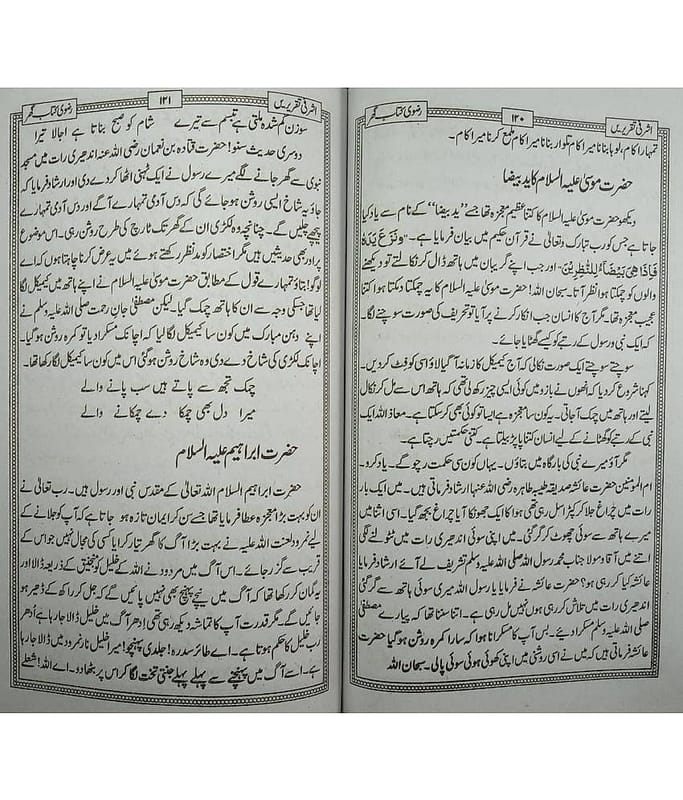 اشرفی تقریریں ۱۲۰ رضوی کتاب گھر
تمہارا کام، لوہا بنانا میرا کام تلوار بنانا میرا کام ملمع کرنا میرا کام۔
حضرت موسیٰ علیہ السلام کا ید بیضا
دیکھو حضرت موسیٰ علیہ السلام کا کتنا عظیم معجزہ تھا جسے ”ید بیضا“ کے نام سے یاد کیا
جاتا ہے جس کو رب تبارک و تعالیٰ نے قرآن حکیم میں بیان فرمایا ہے۔ ”وَنَزَعَ یَدَہٗ
فَاِذَا ھِیَ بَیْضَآءُ لِلنّٰظِرِیْنَ۔ اور جب اپنے گریبان میں ہاتھ ڈال کر نکالتے تو دیکھنے
والوں کو چمکتا ہوا نظر آتا۔ سبحان اللہ! حضرت موسیٰ علیہ السلام کا یہ چمکتا دمکتا ہوا کتنا
عجیب معجزہ تھا۔ مگر آج کا انسان جب انکار کرنے پر آیا تو تحریف کی صورت سوچنے لگا۔
کہ ایک نبی و رسول کے رتبے کو کیسے گھٹایا جائے۔
سوچتے سوچتے ایک صورت نکالی کہ آج کیمیکل کا زمانہ آ گیا لاؤ اسی کو فٹ کر دیں۔
کہنا شروع کر دیا کہ انھوں نے بازو میں کوئی ایسی چیز رکھ لی تھی کہ ہاتھ اس سے مل کر نکال
لیتے اور ہاتھ میں چمک آ جاتی۔ یہ کون سا معجزہ ہے ایسا تو کوئی بھی کر سکتا ہے۔ معاذ اللہ ایک
نبی کے رتبے کو گھٹانے کے لیے انسان کتنا پاپڑ بیلتا ہے۔ کتنی حکمتیں رچتا ہے۔
مگر آؤ میرے نبی کی بارگاہ میں بتاؤں۔ یہاں کون سی حکمت رچو گے۔ یاد کرو۔
ام المومنین حضرت عائشہ صدیقہ طیبہ طاہرہ رضی اللہ عنہا ارشاد فرماتی ہیں۔ میں ایک بار
رات میں چراغ جلا کر کپڑا سل رہی تھی ہوا کا ایک جھونکا آیا چراغ بجھ گیا۔ اسی اثنا میں
میرے ہاتھ سے سوئی چھوٹ کر گر گئی۔ میں اپنی سوئی اندھیری رات میں ٹٹولنے لگی
اتنے میں آقا و مولا جناب محمد رسول اللہ صلی اللہ علیہ وسلم تشریف لے آئے ارشاد فرمایا
عائشہ کیا کر رہی ہو؟ حضرت عائشہ نے فرمایا یا رسول اللہ میری سوئی ہاتھ سے گر گئی
اندھیری رات میں تلاش کر رہی ہوں نہیں مل رہی ہے۔ اتنا سننا تھا کہ پیارے مصطفی
صلی اللہ علیہ وسلم مسکرا دیئے۔ بس آپ کا مسکرانا ہوا کہ سارا کمرہ روشن ہو گیا حضرت
عائشہ فرماتی ہیں کہ میں نے اسی روشنی میں اپنی کھوئی ہوئی سوئی پالی۔ سبحان اللہ
اشرفی تقریریں ۱۲۱ رضوی کتاب گھر
سوزن گم شدہ ملتی ہے تبسم سے تیرے شام کو صبح بناتا ہے اجالا تیرا
دوسری حدیث سنو! حضرت قتادہ بن نعمان رضی اللہ عنہ اندھیری رات میں مسجد
نبوی سے گھر جانے لگے میرے رسول نے ایک ٹہنی اٹھا کر دے دی اور ارشاد فرمایا کہ
جاؤ یہ شاخ ایسی روشن ہو جائے گی کہ دس آدمی تمہارے آگے اور دس آدمی تمہارے
پیچھے چلیں گے۔ چنانچہ وہ لکڑی ان کے گھر تک ٹارچ کی طرح روشن رہی۔ اس موضوع
پر اور بھی حدیثیں ہیں مگر اختصار کو مدنظر رکھتے ہوئے میں یہ عرض کرنا چاہتا ہوں کہ اے
لوگو! بتاؤ تمہارے قول کے مطابق حضرت موسیٰ علیہ السلام نے اپنے ہاتھ میں کیمیکل لگا
لیا تھا جس کی وجہ سے ان کا ہاتھ چمک گیا۔ لیکن مصطفی جان رحمت صلی اللہ علیہ وسلم نے
اپنے دہن مبارک میں کون سا کیمیکل لگا لیا کہ اچانک مسکرا دیا تو کمرہ روشن ہو گیا۔
اچانک لکڑی کی شاخ دے دی وہ شاخ روشن ہو گئی اس میں کون سا کیمیکل لگا رکھا تھا۔
چمک تجھ سے پاتے ہیں سب پانے والے
میرا دل بھی چمکا دے چمکانے والے
حضرت ابراہیم علیہ السلام
حضرت ابراہیم السلام اللہ تعالیٰ کے مقدس نبی اور رسول ہیں۔ رب تعالیٰ نے
ان کو بہت بڑا معجزہ عطا فرمایا تھا جسے سن کر ایمان تازہ ہو جاتا ہے کہ آپ کو جلانے کے
لیے نمرود لعنت اللہ علیہ نے بہت بڑا آگ کا گھر تیار کرایا کسی کی مجال نہیں جو اس کے
قریب سے گزر جائے۔ اس آگ میں مردود نے اللہ کے خلیل کو منجنیق کے ذریعہ ڈالا اور
یہ گمان کر رکھا تھا کہ آگ میں نیچے پہنچ بھی نہیں پائیں گے کہ جل کر راکھ کے ڈھیر ہو
جائیں گے۔ مگر قدرت آپ کا تماشہ دیکھ رہی تھی اِدھر آگ میں خلیل ڈالا جا رہا ہے اُدھر
رب خلیل کا حکم ہوتا ہے۔ اے طائر سدرہ! جلدی پہنچو! میرا خلیل نار نمرود میں ڈالا جا رہا
ہے۔ اسے آگ میں پہنچنے سے پہلے پہلے جنتی تخت لگا کر اس پر بٹھا دو۔ اے اللہ! شعلے